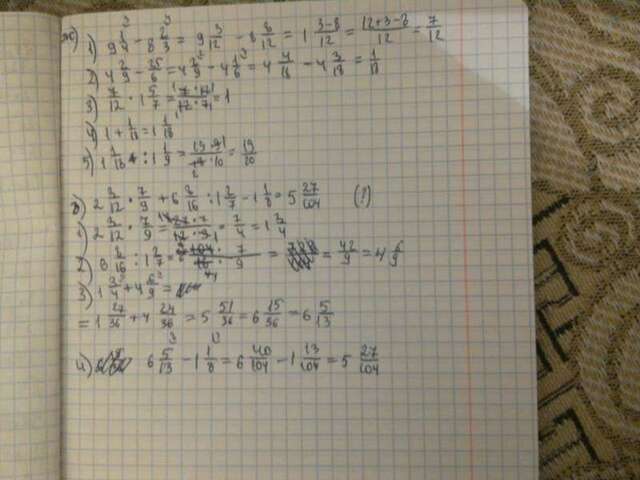 ж) 1) 9 1/4 - 8 2/3 = 9 3/12 - 8 8/12 = 1 (3-8)/12 = (12+3-8)/12 = 7/12
2) 4 2/9 - 25/6 = 4 2/9 - 4 1/6 = 4 4/18 - 4 3/18 = 1/18
3) 7/12 · 1 5/7 = (7·12)/(12·7) = 1
4) 1 + 1/18 = 1 1/18
5) 1 1/18 : 1 1/9 = (19·9)/(18·10) = 19/20
з) 2 3/12 · 7/9 + 6 3/16 : 1 2/7 - 1 1/8 = 5 27/104 (?)
1) 2 3/12 · 7/9 = (27·7)/(12·9) = 7/4 = 1 3/4
2) 6 : 1 2/7 = 7/9 = = 42/9 = 4 6/9
3) 1 3/4 + 4 6/9 =
= 1 27/36 + 4 24/36 = 5 51/36 = 6 15/36 = 6 5/13
4) 6 5/13 - 1 1/8 = 6 40/104 - 1 13/104 = 5 27/104